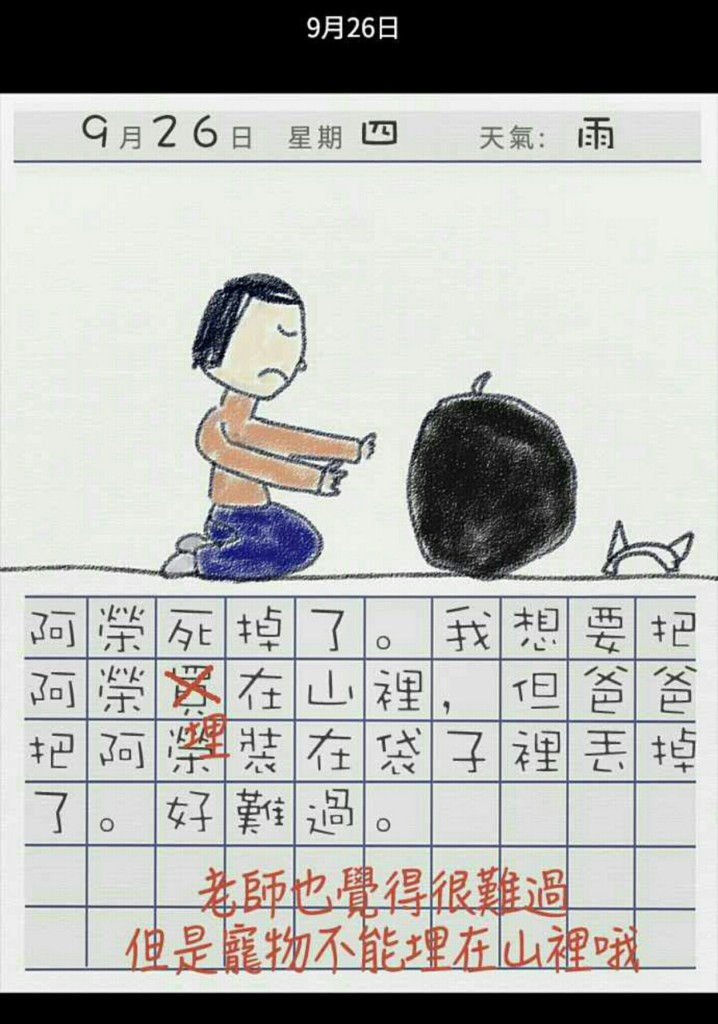 9月26日
9月26日 星期四 天氣: 雨
阿榮死掉了。我想要把
阿榮買在山裡，但爸爸
埋
把阿榮裝在袋子裡丟掉
了。好難過。
老師也覺得很難過
但是寵物不能埋在山裡哦